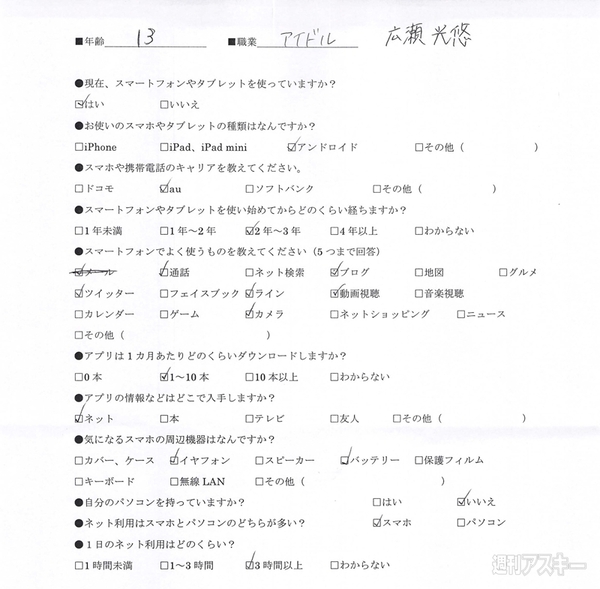 ■年齢 13 ■職業 アイドル 広瀬 光悠
●現在、スマートフォンやタブレットを使っていますか?
☑はい □いいえ
●お使いのスマホやタブレットの種類はなんですか?
□iPhone □iPad、iPad mini ☑アンドロイド □その他( )
●スマホや携帯電話のキャリアを教えてください。
□ドコモ ☑au □ソフトバンク □その他( )
●スマートフォンやタブレットを使い始めてからどのくらい経ちますか?
□1年未満 □1年～2年 ☑2年～3年 □4年以上 □わからない
●スマートフォンでよく使うものを教えてください(5つまで回答)
☑メール ☑通話 □ネット検索 ☑ブログ □地図 □グルメ
☑ツイッター □フェイスブック ☑ライン ☑動画視聴 □音楽視聴
□カレンダー □ゲーム ☑カメラ □ネットショッピング □ニュース
□その他( )
●アプリは1カ月あたりどのくらいダウンロードしますか?
□0本 ☑1～10本 □10本以上 □わからない
●アプリの情報などはどこで入手しますか?
☑ネット □本 □テレビ □友人 □その他( )
●気になるスマホの周辺機器はなんですか?
□カバー、ケース ☑イヤフォン □スピーカー ☑バッテリー □保護フィルム
□キーボード □無線LAN □その他( )
●自分のパソコンを持っていますか? □はい ☑いいえ
●ネット利用はスマホとパソコンのどちらが多い? ☑スマホ □パソコン
●1日のネット利用はどのくらい?
□1時間未満 □1～3時間 ☑3時間以上 □わからない
週刊アスキー